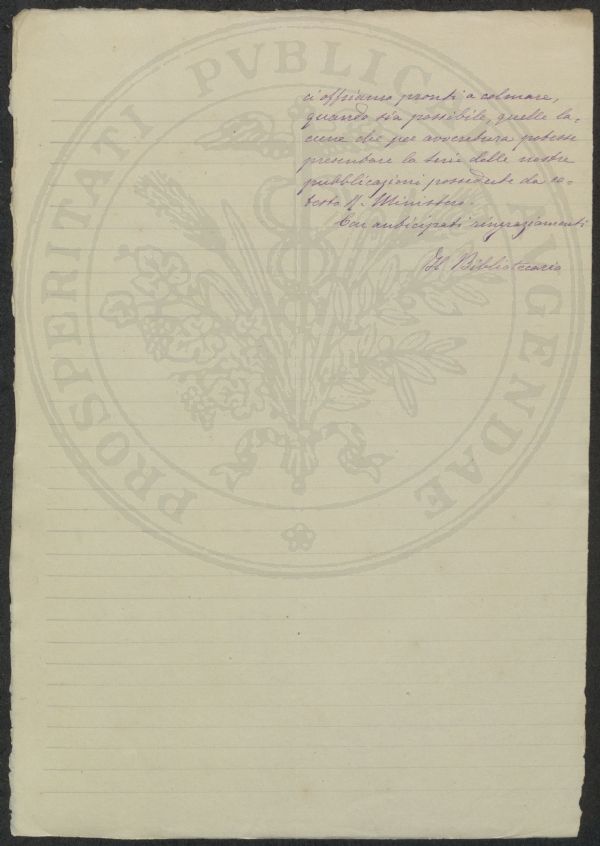 PROSPERITATI PVBLICAE AVGENDAE
ci offriamo pronti a colmare,
quando sia possibile, quelle la-
cune che per avventura potesse
presentare la serie delle nostre
pubblicazioni possedute da co-
testo R. Ministero.
Con anticipati ringraziamenti
Il Bibliotecario